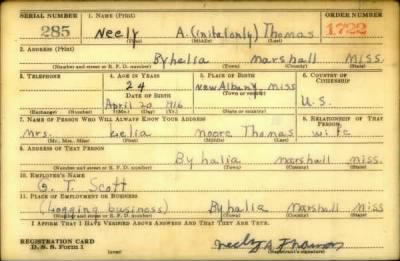 SERIAL NUMBER 1. NAME (Print) ORDER NUMBER
285 Neely A. (inital only) Thomas 1722
(First) (Middle) (Last)
2. ADDRESS (Print)
Byhalia Marshall Miss.
(Number and street or R. F. D. number) (Town) (County) (State)
3. TELEPHONE 4. AGE IN YEARS 5. PLACE OF BIRTH 6. COUNTRY OF CITIZENSHIP
24 New Albany Miss
DATE OF BIRTH (Town or county)
April 20 1916 U.S.
(Exchange) (Number) (Mo.) (Day) (Yr.) (State or country)
7. NAME OF PERSON WHO WILL ALWAYS KNOW YOUR ADDRESS 8. RELATIONSHIP OF THAT PERSON
Mrs. Moore Thomas wife
(Mr., Mrs., Miss) (First) (Middle) (Last)
9. ADDRESS OF THAT PERSON
Byhalia Marshall Miss.
(Number and street or R. F. D. number) (Town) (County) (State)
10. EMPLOYER'S NAME
T. Scott
11. PLACE OF EMPLOYMENT OR BUSINESS
(Logging business) Byhalia Marshall Miss
(Number and street or R. F. D. number) (Town) (County) (State)
I AFFIRM THAT I HAVE VERIFIED ABOVE ANSWERS AND THAT THEY ARE TRUE.
REGISTRATION CARD
D. S. S. Form 1 (over) Neely A Thomas
(Registrant's signature)